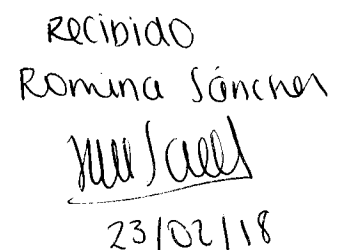 Recibido
Romina Sánchez
23/02/18